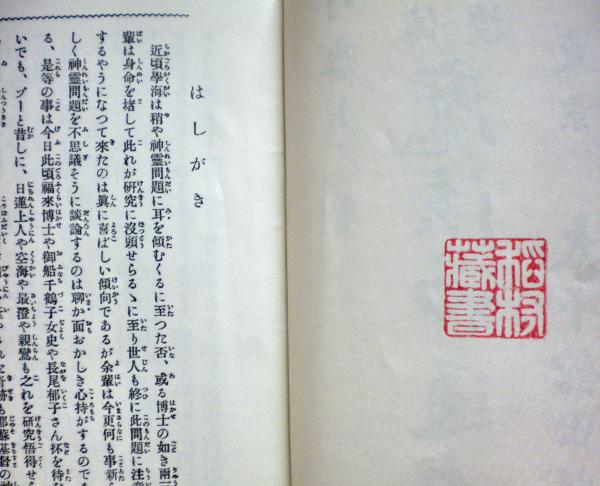 稻村藏書
はしがき
近頃學海は稍や神靈問題に耳を傾むくるに至つた否、或る博士の如き兩三
輩は身命を堵して此れが研究に沒頭せらるゝに至り世人も終に此問題に注意
するやうになつて來たのは眞に喜ばしい傾向であるが余輩は今更何も事新
しく神靈問題を不思議そうに談論するのは聊か面おかしき心持がするので
る、是等の事は今日此頃福來博士や御船千鶴子女史や長尾郁子さん抔を待
いでも、ヅーと昔しに、日蓮上人や空海や最澄や親鸞も之れを研究悟得せ
も耶蘇基督の神